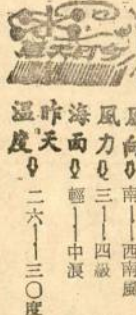 今日天氣
風向⇩南——西南風
風力⇩三——四級
海面⇩輕——中浪
昨天
溫度⇩二六——三〇度